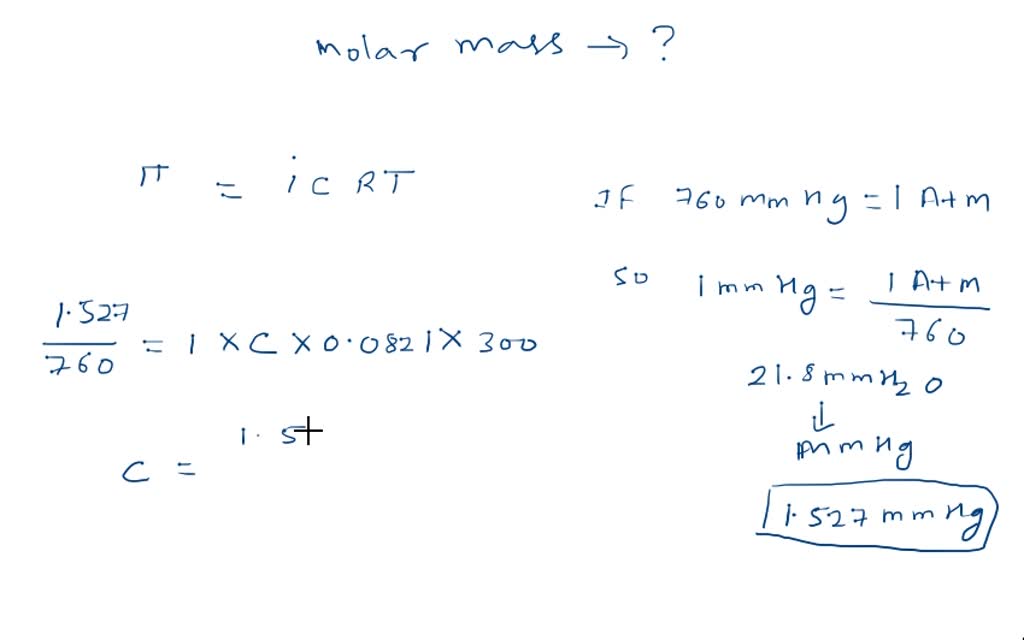 molar mass → ?
π = i C R T
1.527 / 760 = 1 × C × 0.0821 × 300
C = 1.5
If 760 mm Hg = 1 Atm
so 1 mm Hg = 1 Atm / 760
21.8 mm H2O
↓
mm Hg
1.527 mm Hg